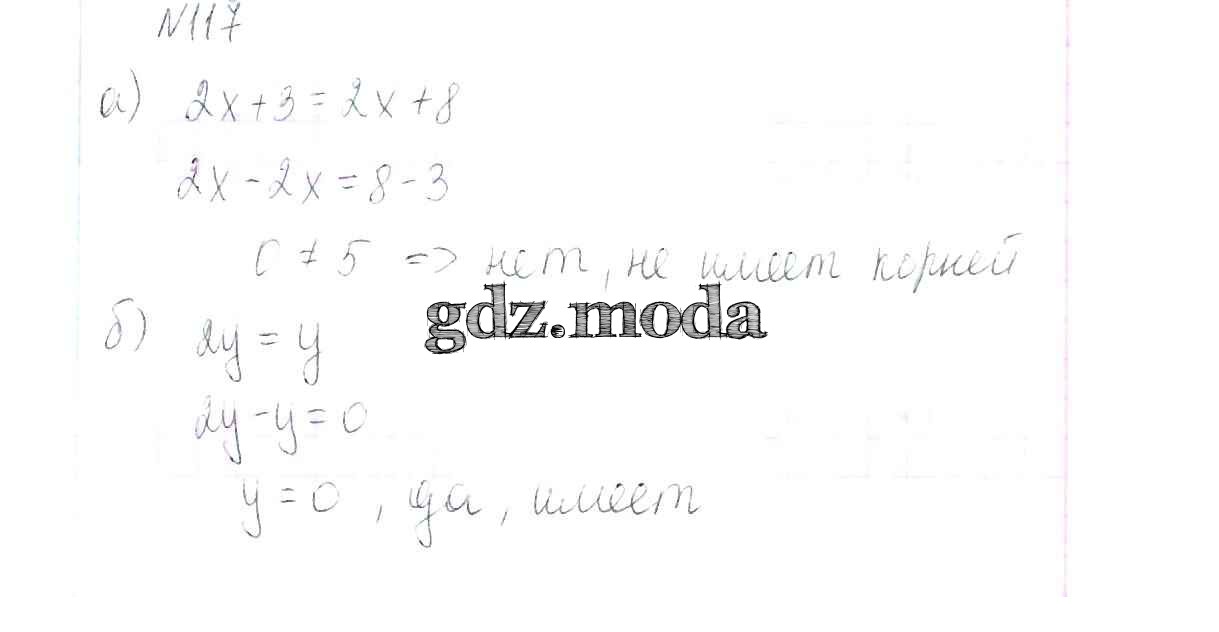 N117
а) 2x+3=2x+8
2x-2x=8-3
0≠5 => нет, не имеет корней
gdz.moda
б) 2y=y
2y-y=0
y=0, да, имеет